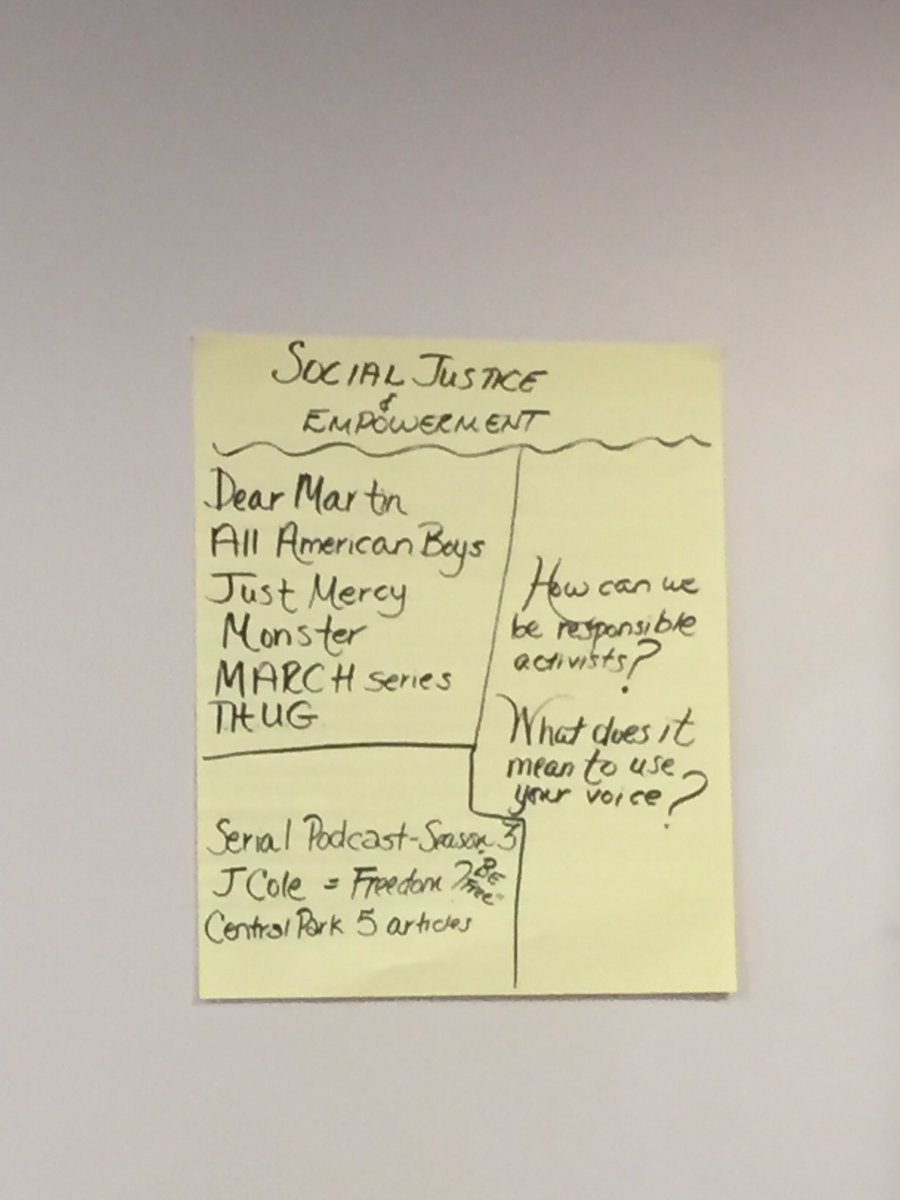 SOCIAL JUSTICE
&
EMPOWERMENT
Dear Martin
All American Boys
Just Mercy
Monster
MARCH series
THUG
How can we
be responsible
activists?
What does it
mean to use
your voice?
Serial Podcast-Season 3
J Cole = Freedom? Be
Free
Central Park 5 articles